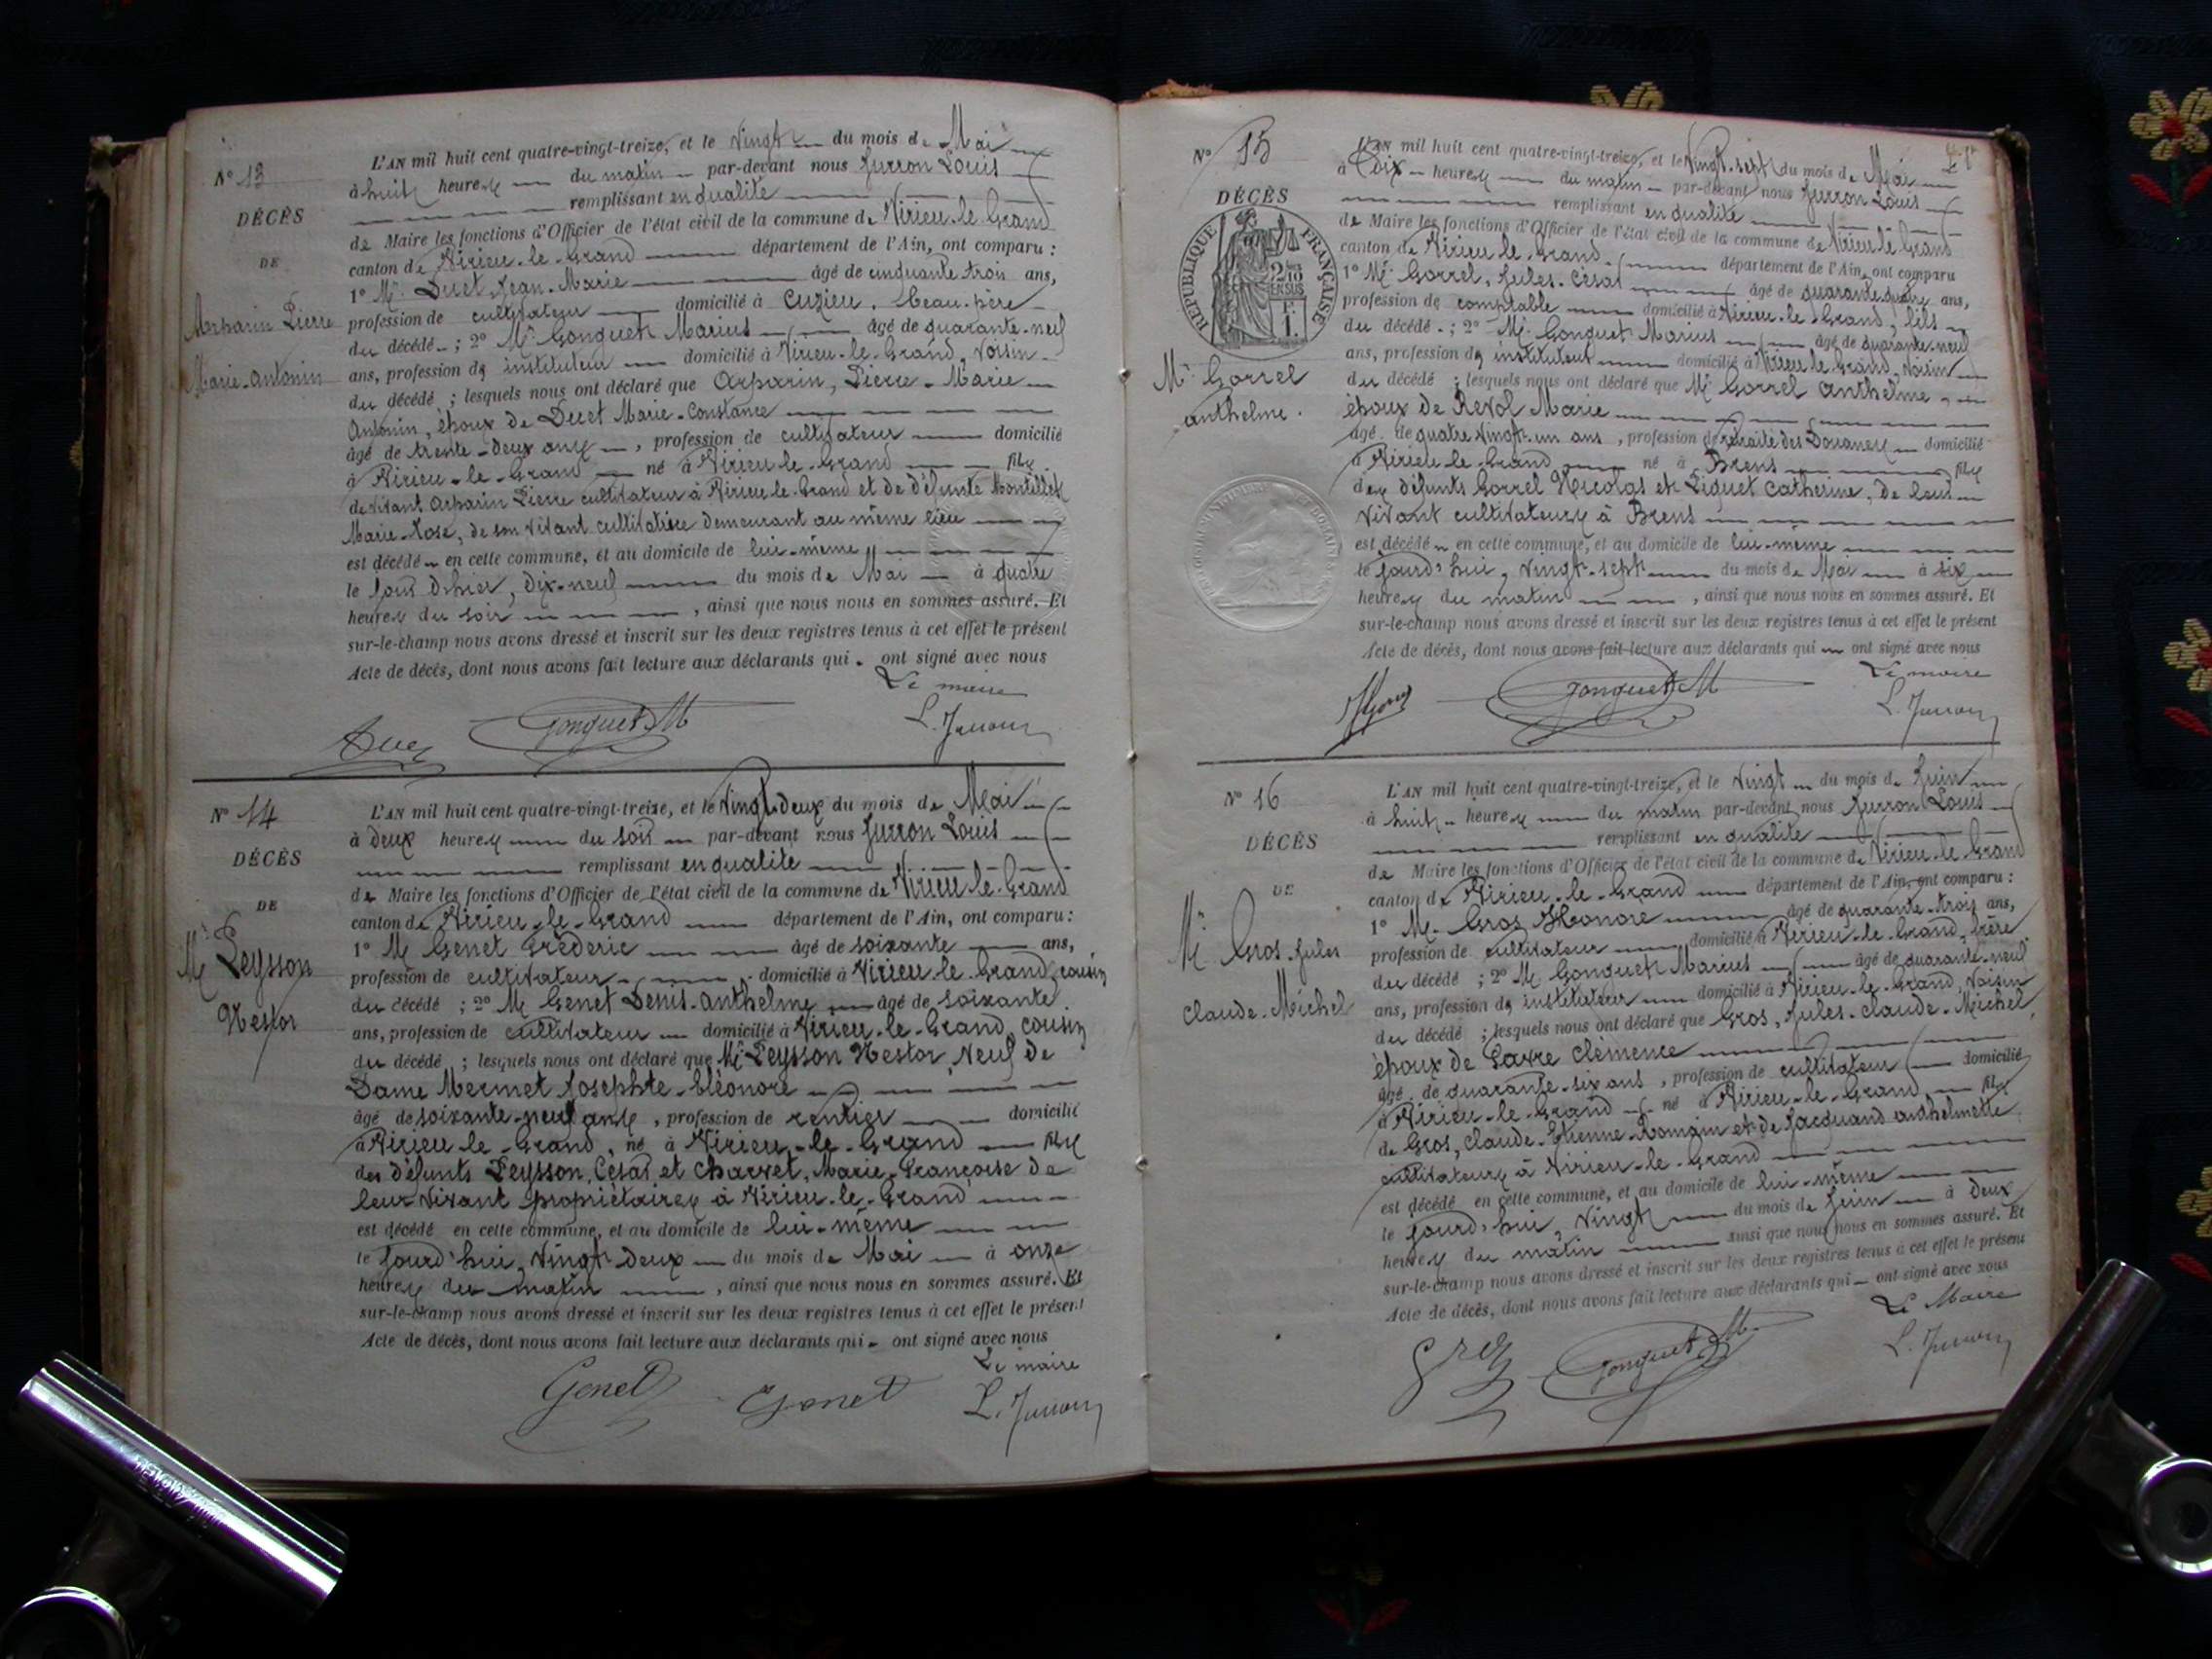 N° 13
DÉCÈS
DE
Arparin Pierre
Marie-Antonin
L'AN mil huit cent quatre-vingt-treize, et le Vingt du mois de Mai
à huit heures du matin par-devant nous Jurron Louis
remplissant en qualité
de Maire les fonctions d'Officier de l'état civil de la commune de Virieu-le-Grand
canton de Virieu-le-Grand département de l'Ain, ont comparu :
1° Mr Ducet Jean-Marie âgé de cinquante trois ans,
profession de cultivateur domicilié à Cuzieu, beau-père
du décédé ; 2° Mr Gonguet Marius âgé de quarante-neuf
ans, profession de instituteur domicilié à Virieu-le-Grand, Voisin
du décédé ; lesquels nous ont déclaré que Arparin, Pierre-Marie
Antonin, époux de Ducet Marie-Constance
âgé de trente-deux ans, profession de cultivateur domicilié
à Virieu-le-Grand né à Virieu-le-Grand fils
de vivant Arparin Pierre cultivateur à Virieu-le-Grand et de défunte Montillet
Marie-Rose, de son vivant cultivatrice demeurant au même lieu
est décédé en cette commune, et au domicile de lui-même
le jour d'hier, dix-neuf du mois de Mai à quatre
heures du soir, ainsi que nous nous en sommes assuré. Et
sur-le-champ nous avons dressé et inscrit sur les deux registres tenus à cet effet le présent
Acte de décès, dont nous avons fait lecture aux déclarants qui ont signé avec nous
Le maire
Gonguet M
L. Jurron
N° 14
DÉCÈS
DE
Mr Peysson
Nestor
L'AN mil huit cent quatre-vingt-treize, et le Vingt-deux du mois de Mai
à deux heures du soir par-devant nous Jurron Louis
remplissant en qualité
de Maire les fonctions d'Officier de l'état civil de la commune de Virieu-le-Grand
canton de Virieu-le-Grand département de l'Ain, ont comparu :
1° Mr Genet Fréderic âgé de soixante ans,
profession de cultivateur domicilié à Virieu-le-Grand, cousin
du décédé ; 2° Mr Genet Denis-Anthelme âgé de soixante
ans, profession de cultivateur domicilié à Virieu-le-Grand, cousin
du décédé ; lesquels nous ont déclaré que Mr Peysson Nestor, Veuf de
Dame Mermet Josephte-Eléonore
âgé de soixante-neuf ans, profession de rentier domicilié
à Virieu-le-Grand, né à Virieu-le-Grand fils
des défunts Peysson, César et Charvet, Marie-Françoise de
leur vivant propriétaires à Virieu-le-Grand
est décédé en cette commune, et au domicile de lui-même
le jourd'hui, Vingt-deux du mois de Mai à onze
heures du matin, ainsi que nous nous en sommes assuré. Et
sur-le-champ nous avons dressé et inscrit sur les deux registres tenus à cet effet le présent
Acte de décès, dont nous avons fait lecture aux déclarants qui ont signé avec nous
Le maire
Genet Genet L. Jurron
N° 15
DÉCÈS
RÉPUBLIQUE FRANÇAISE
2/10 EN SUS
1 F.
Mr Gorrel
Anthelme.
L'AN mil huit cent quatre-vingt-treize, et le Vingt-sept du mois de Mai
à Dix heures du matin par-devant nous Jurron Louis
remplissant en qualité
de Maire les fonctions d'Officier de l'état civil de la commune de Virieu-le-Grand
canton de Virieu-le-Grand département de l'Ain, ont comparu
1° Mr Gorrel, Jules-César âgé de quarante quatre ans,
profession de comptable domicilié à Virieu-le-Grand, fils
du décédé ; 2° Mr Gonguet Marius âgé de quarante-neuf
ans, profession de instituteur domicilié à Virieu-le-Grand, Voisin
du décédé ; lesquels nous ont déclaré que Mr Gorrel Anthelme
époux de Revol Marie
âgé de quatre vingt-un ans, profession de retraité des Douanes domicilié
à Virieu-le-Grand né à Brens fils
des défunts Gorrel Nicolas et Liguet Catherine, de leur
vivant cultivateurs à Brens
est décédé en cette commune, et au domicile de lui-même
le jourd'hui, Vingt-sept du mois de Mai à six
heures du matin, ainsi que nous nous en sommes assuré. Et
sur-le-champ nous avons dressé et inscrit sur les deux registres tenus à cet effet le présent
Acte de décès, dont nous avons fait lecture aux déclarants qui ont signé avec nous
Le maire
Gonguet M
L. Jurron
N° 16
DÉCÈS
DE
Mr Gros Jules
Claude-Michel
L'AN mil huit cent quatre-vingt-treize, et le Vingt du mois de Juin
à huit heures du matin par-devant nous Jurron Louis
remplissant en qualité
de Maire les fonctions d'Officier de l'état civil de la commune de Virieu-le-Grand
canton de Virieu-le-Grand département de l'Ain, ont comparu :
1° M. Gros Honoré âgé de quarante-trois ans,
profession de cultivateur domicilié à Virieu-le-Grand, frère
du décédé ; 2° Mr Gonguet Marius âgé de quarante-neuf
ans, profession de instituteur domicilié à Virieu-le-Grand, Voisin
du décédé ; lesquels nous ont déclaré que Gros, Jules-Claude-Michel,
époux de Favre Clémence
âgé de quarante-six ans, profession de cultivateur domicilié
à Virieu-le-Grand né à Virieu-le-Grand fils
de Gros, Claude-Etienne-Romain et de Jacquand Anthelmette
cultivateurs à Virieu-le-Grand
est décédé en cette commune, et au domicile de lui-même
le jourd'hui, Vingt du mois de Juin à deux
heures du matin ainsi que nous nous en sommes assuré. Et
sur-le-champ nous avons dressé et inscrit sur les deux registres tenus à cet effet le présent
Acte de décès, dont nous avons fait lecture aux déclarants qui ont signé avec nous
Le Maire
Gros Gonguet M. L. Jurron